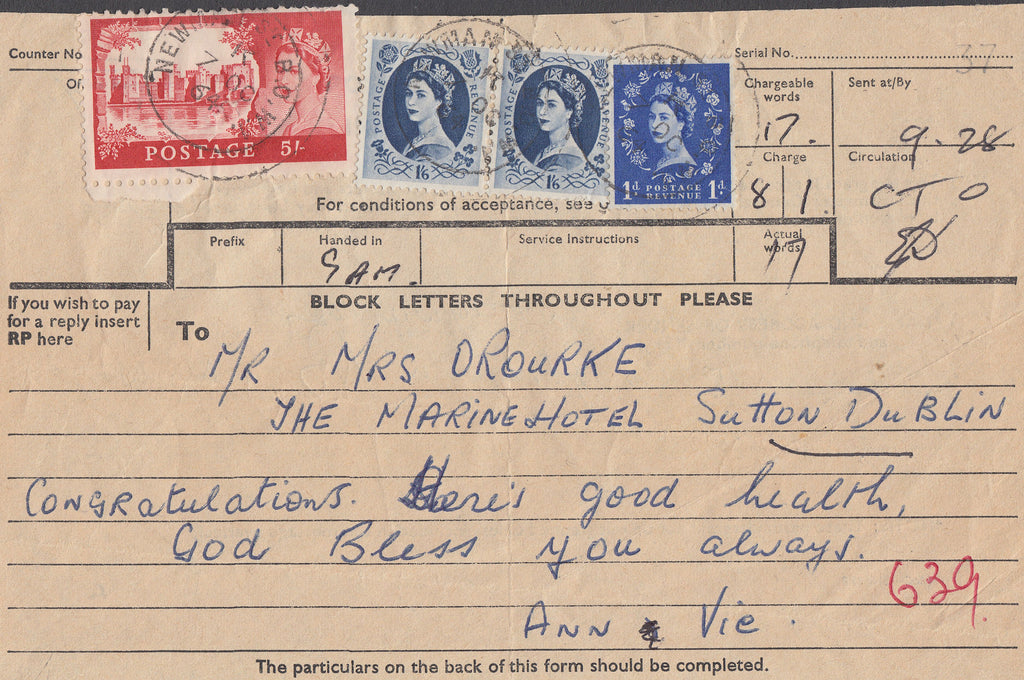 Counter No
Serial No. 37
Of
POSTAGE 5/-
POSTAGE REVENUE 1/6
POSTAGE REVENUE 1/6
1d POSTAGE REVENUE 1d
NEWMAN
Chargeable words
17.
Sent at/By
9.28
Charge
8 1.
Circulation
CTO
For conditions of acceptance, see
Prefix
Handed in
9 AM.
Service Instructions
Actual words
17
If you wish to pay
for a reply insert
RP here
BLOCK LETTERS THROUGHOUT PLEASE
To
M/R MRS OROURKE
THE MARINE HOTEL SUttON DUBLiN
CONGRAtulationS. Here's good health,
God Bless you always.
639.
ANN & Vie.
The particulars on the back of this form should be completed.